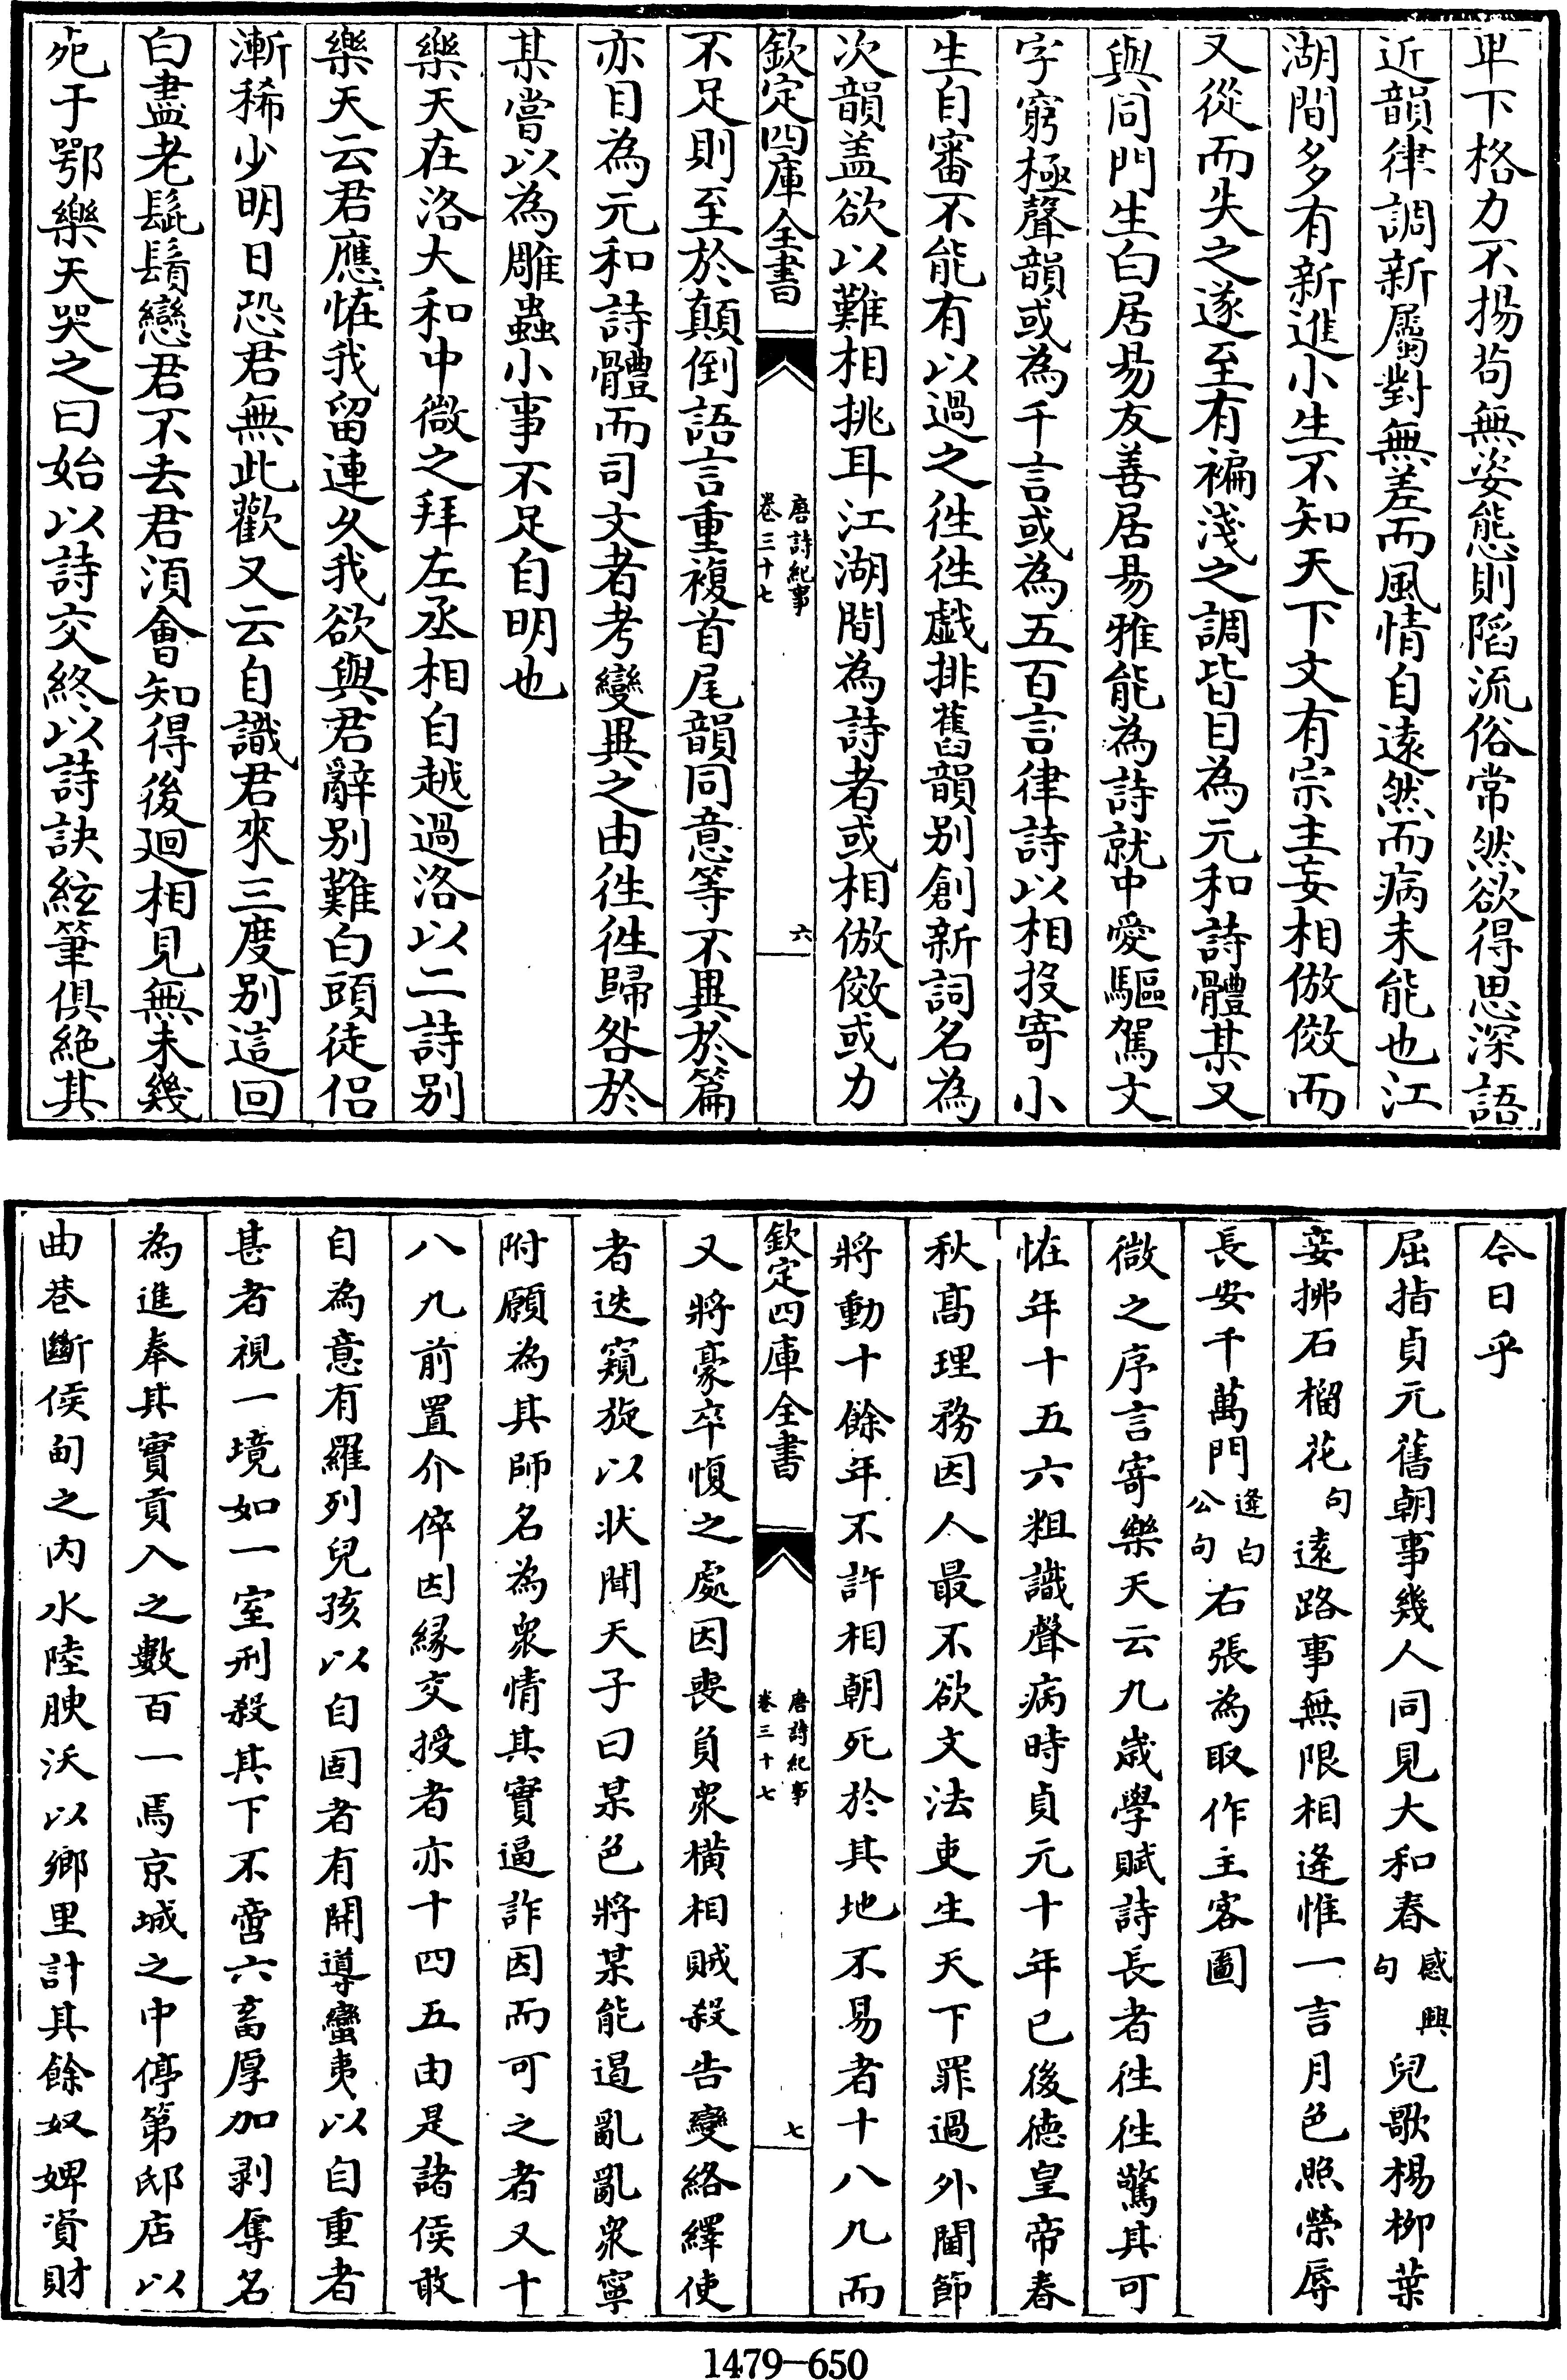 卑下格力不揚苟無姿態則陷流俗常然欲得思深語
近韻律調新屬對無差而風情自遠然而病未能也江
湖間多有新進小生不知天下文有宗主妄相倣傚而
又從而失之遂至有褊淺之調皆目為元和詩體某又
與同門生白居易友善居易雅能為詩就中愛驅駕文
字窮極聲韻或為千言或為五百言律詩以相投寄小
生自審不能有以過之徃徃戱排舊韻别創新詞名為
次韻盖欲以難相挑耳江湖間為詩者或相倣傚或力
欽定四庫全書
唐詩紀事
卷三十七
六
不足則至於顛倒語言重複首尾韻同意等不異於篇
亦目為元和詩體而司文者考變異之由徃徃歸咎於
某嘗以為雕蟲小事不足自明也
樂天在洛大和中微之拜左丞相自越過洛以二詩别
樂天云君應恠我留連久我欲與君辭别難白頭徒侣
漸稀少明日恐君無此歡又云自識君來三度别這回
白盡老髭鬚戀君不去君須會知得後廻相見無未幾
死于鄂樂天哭之曰始以詩交終以詩訣絃筆俱絶其
今日乎
屈指貞元舊朝事幾人同見大和春感興句兒歌楊柳葉
妾拂石榴花句遠路事無限相逢惟一言月色照榮辱
長安千萬門逢白公句右張為取作主客圖
微之序言寄樂天云九歲學賦詩長者徃徃驚其可
恠年十五六粗識聲病時貞元十年已後德皇帝春
秋髙理務因人最不欲文法吏生天下罪過外閫節
將動十餘年不許相朝死於其地不易者十八九而
欽定四庫全書
唐詩紀事
卷三十七
七
又將豪卒愎之處因喪負衆橫相賊殺告變絡繹使
者迭窺旋以狀聞天子曰某色將某能遏亂亂衆寧
附願為其師名為衆情其實逼詐因而可之者又十
八九前置介倅因縁交授者亦十四五由是諸侯敢
自為意有羅列兒孩以自固者有開導蠻夷以自重者
甚者視一境如一室刑殺其下不啻六畜厚加剥奪名
為進奉其實貢入之數百一焉京城之中停第邸店以
曲巷斷侯甸之内水陸腴沃以鄉里計其餘奴婢資財
1479—650